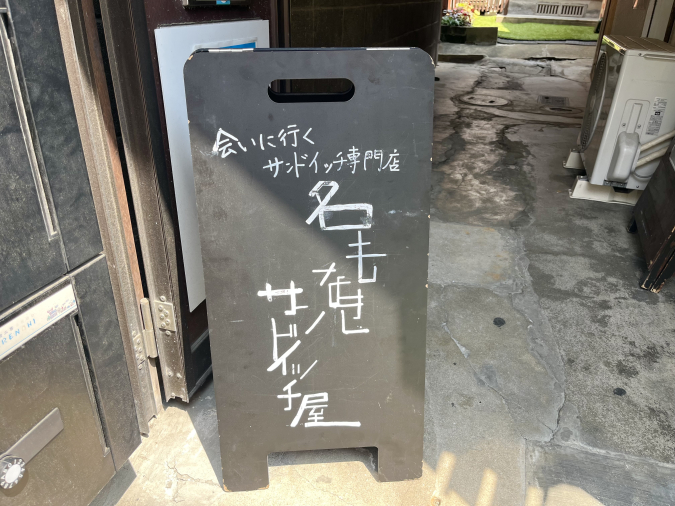 会いに行く
サンドイッチ専門店
名も無き
サンドイッチ屋